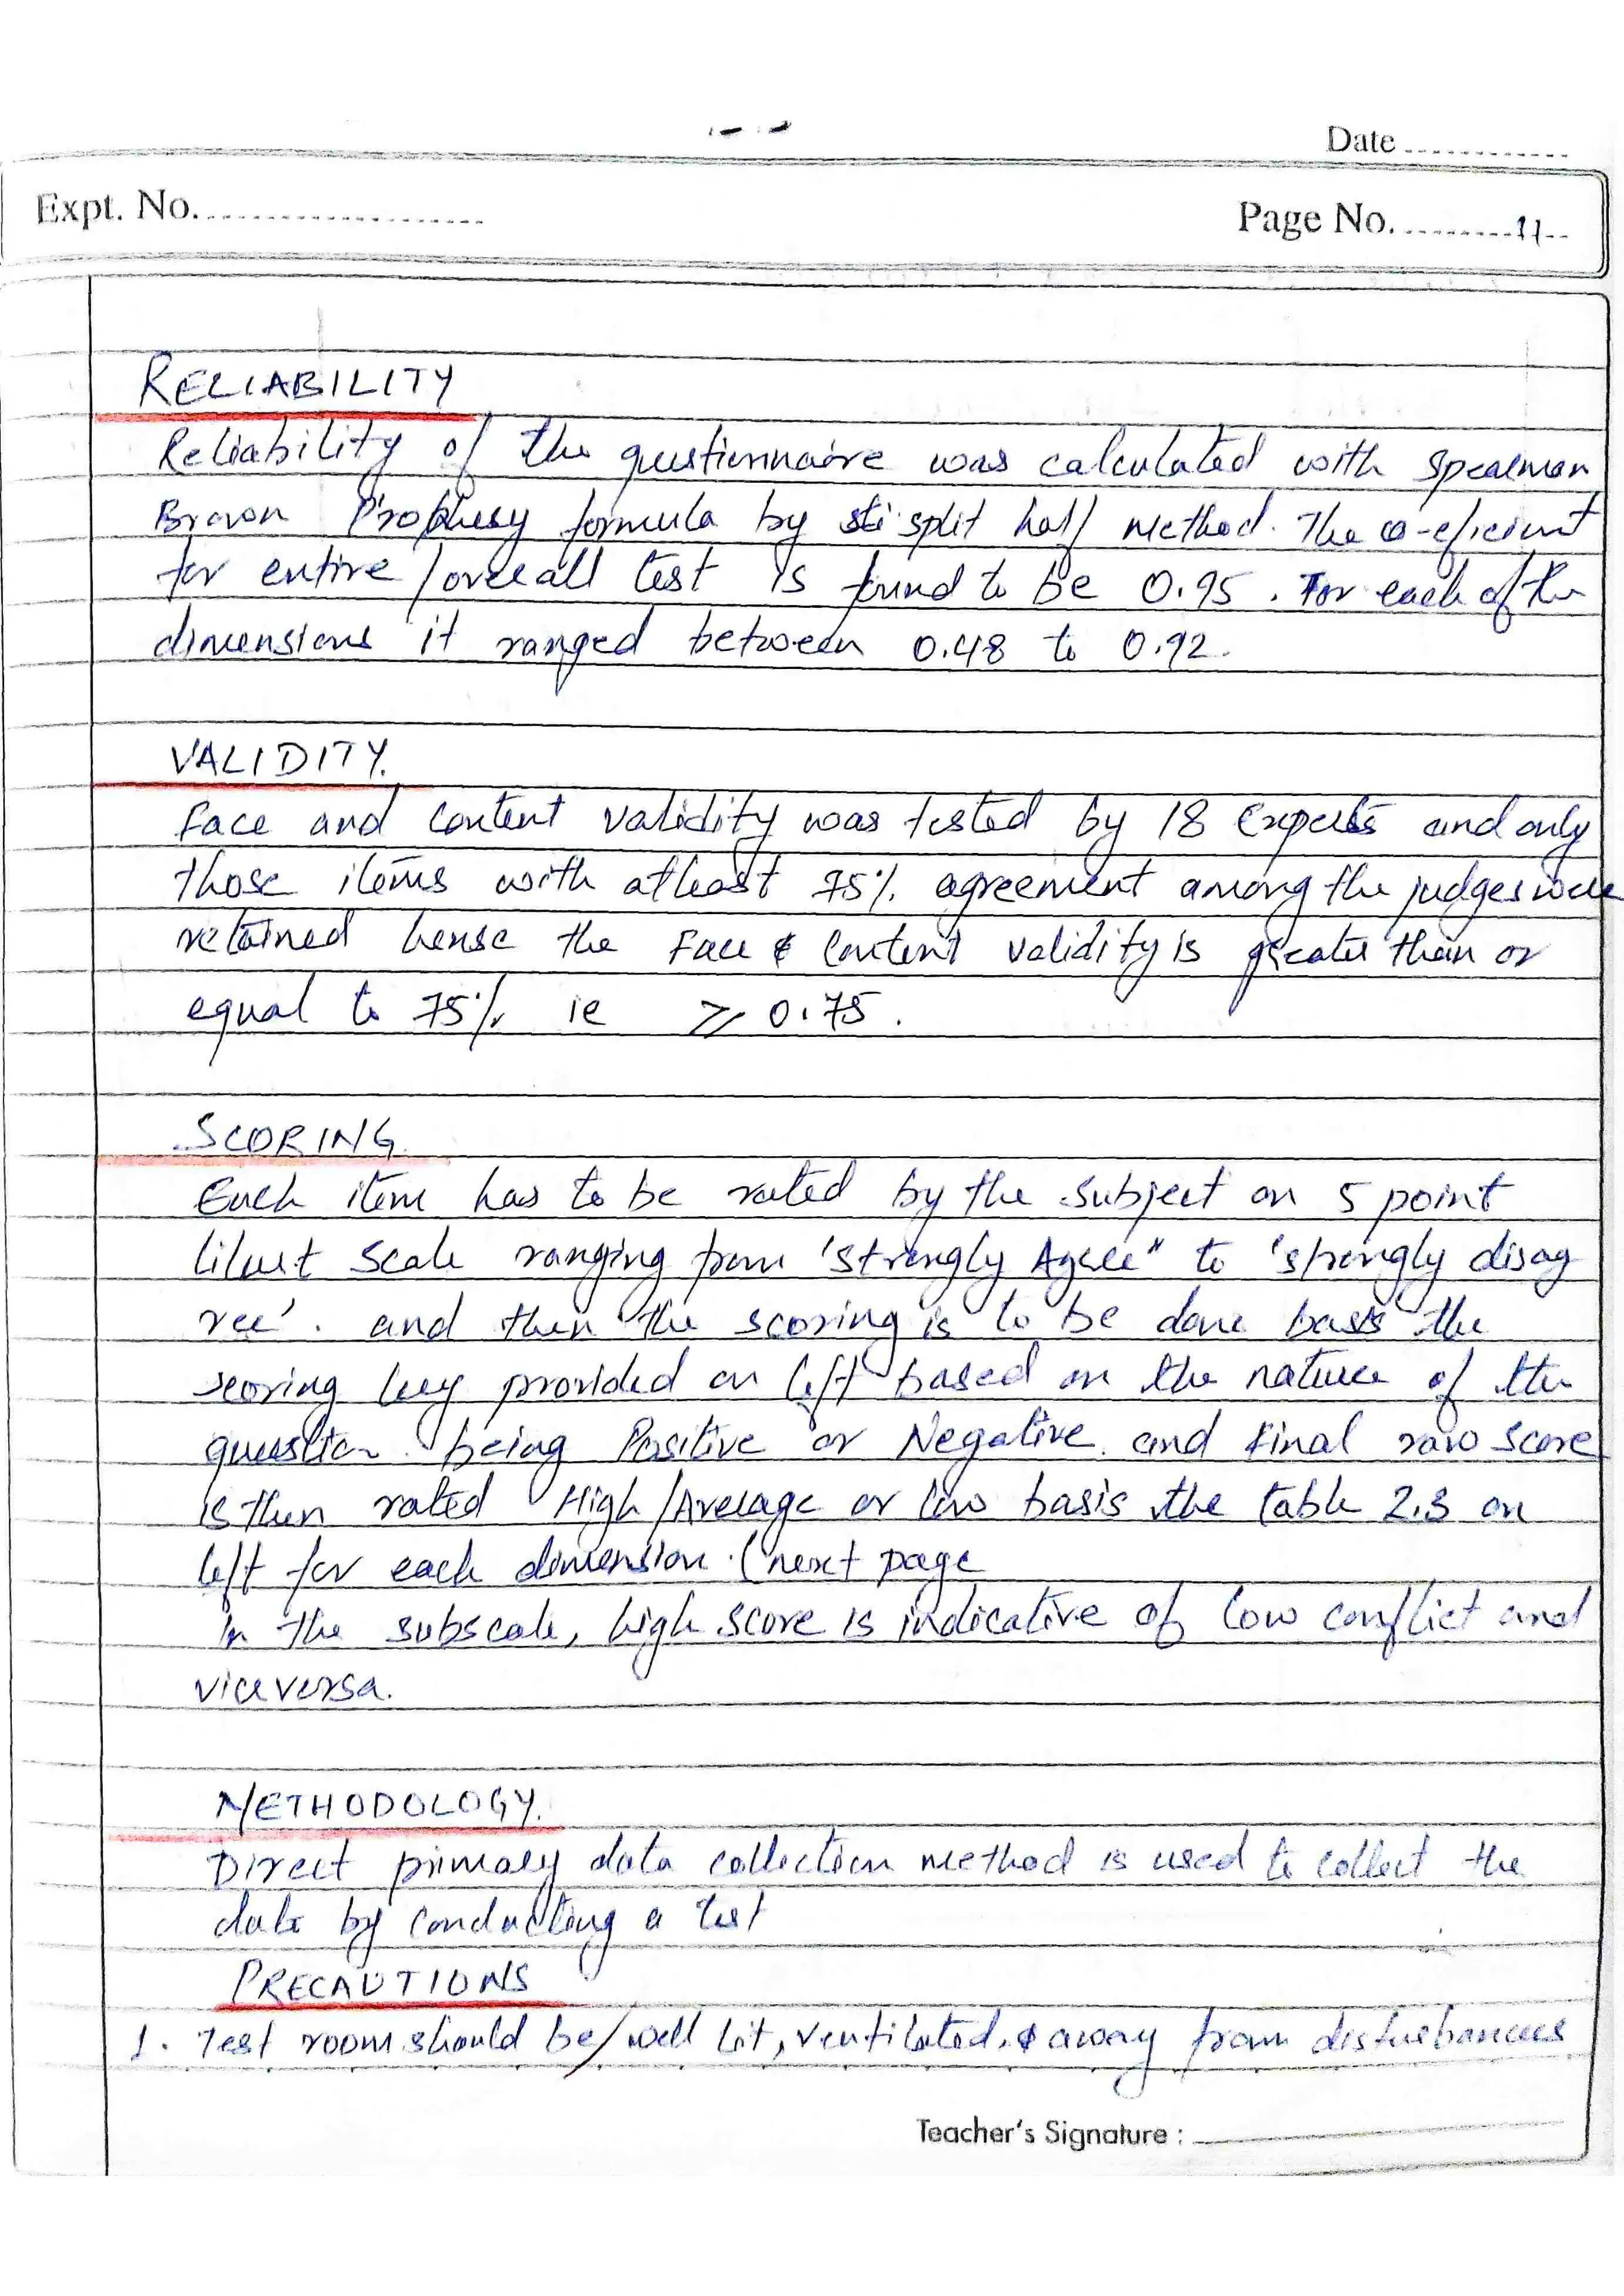 Date
Expt. No.
Page No. 11
RELIABILITY
Reliability of the questionnaire was calculated with spearman
Brown Prophesy formula by split half method. The co-eficient
for entire/overall test is found to be 0.95. For each of the
dimensions it ranged between 0.48 to 0.92.
VALIDITY.
Face and content validity was tested by 18 experts and only
those items with atleast 75% agreement among the judges were
retained hense the Face & Content validity is greater than or
equal to 75% ie ≥ 0.75.
SCORING.
Each item has to be rated by the subject on 5 point
likert scale ranging from 'strongly Agree" to 'strongly disag
ree'. and then the scoring is to be done basis the
scoring key provided on left based on the nature of the
question being Positive or Negative. and Final raw score
is then rated High/Average or low basis the table 2.3 on
left for each dimension. (next page
In the subscale, high score is indicative of low conflict and
viceversa.
METHODOLOGY.
Direct primary data collection method is used to collect the
data by conducting a test
PRECAUTIONS
1. Test room should be/well lit, ventilated, & away from disturbances
Teacher's Signature :